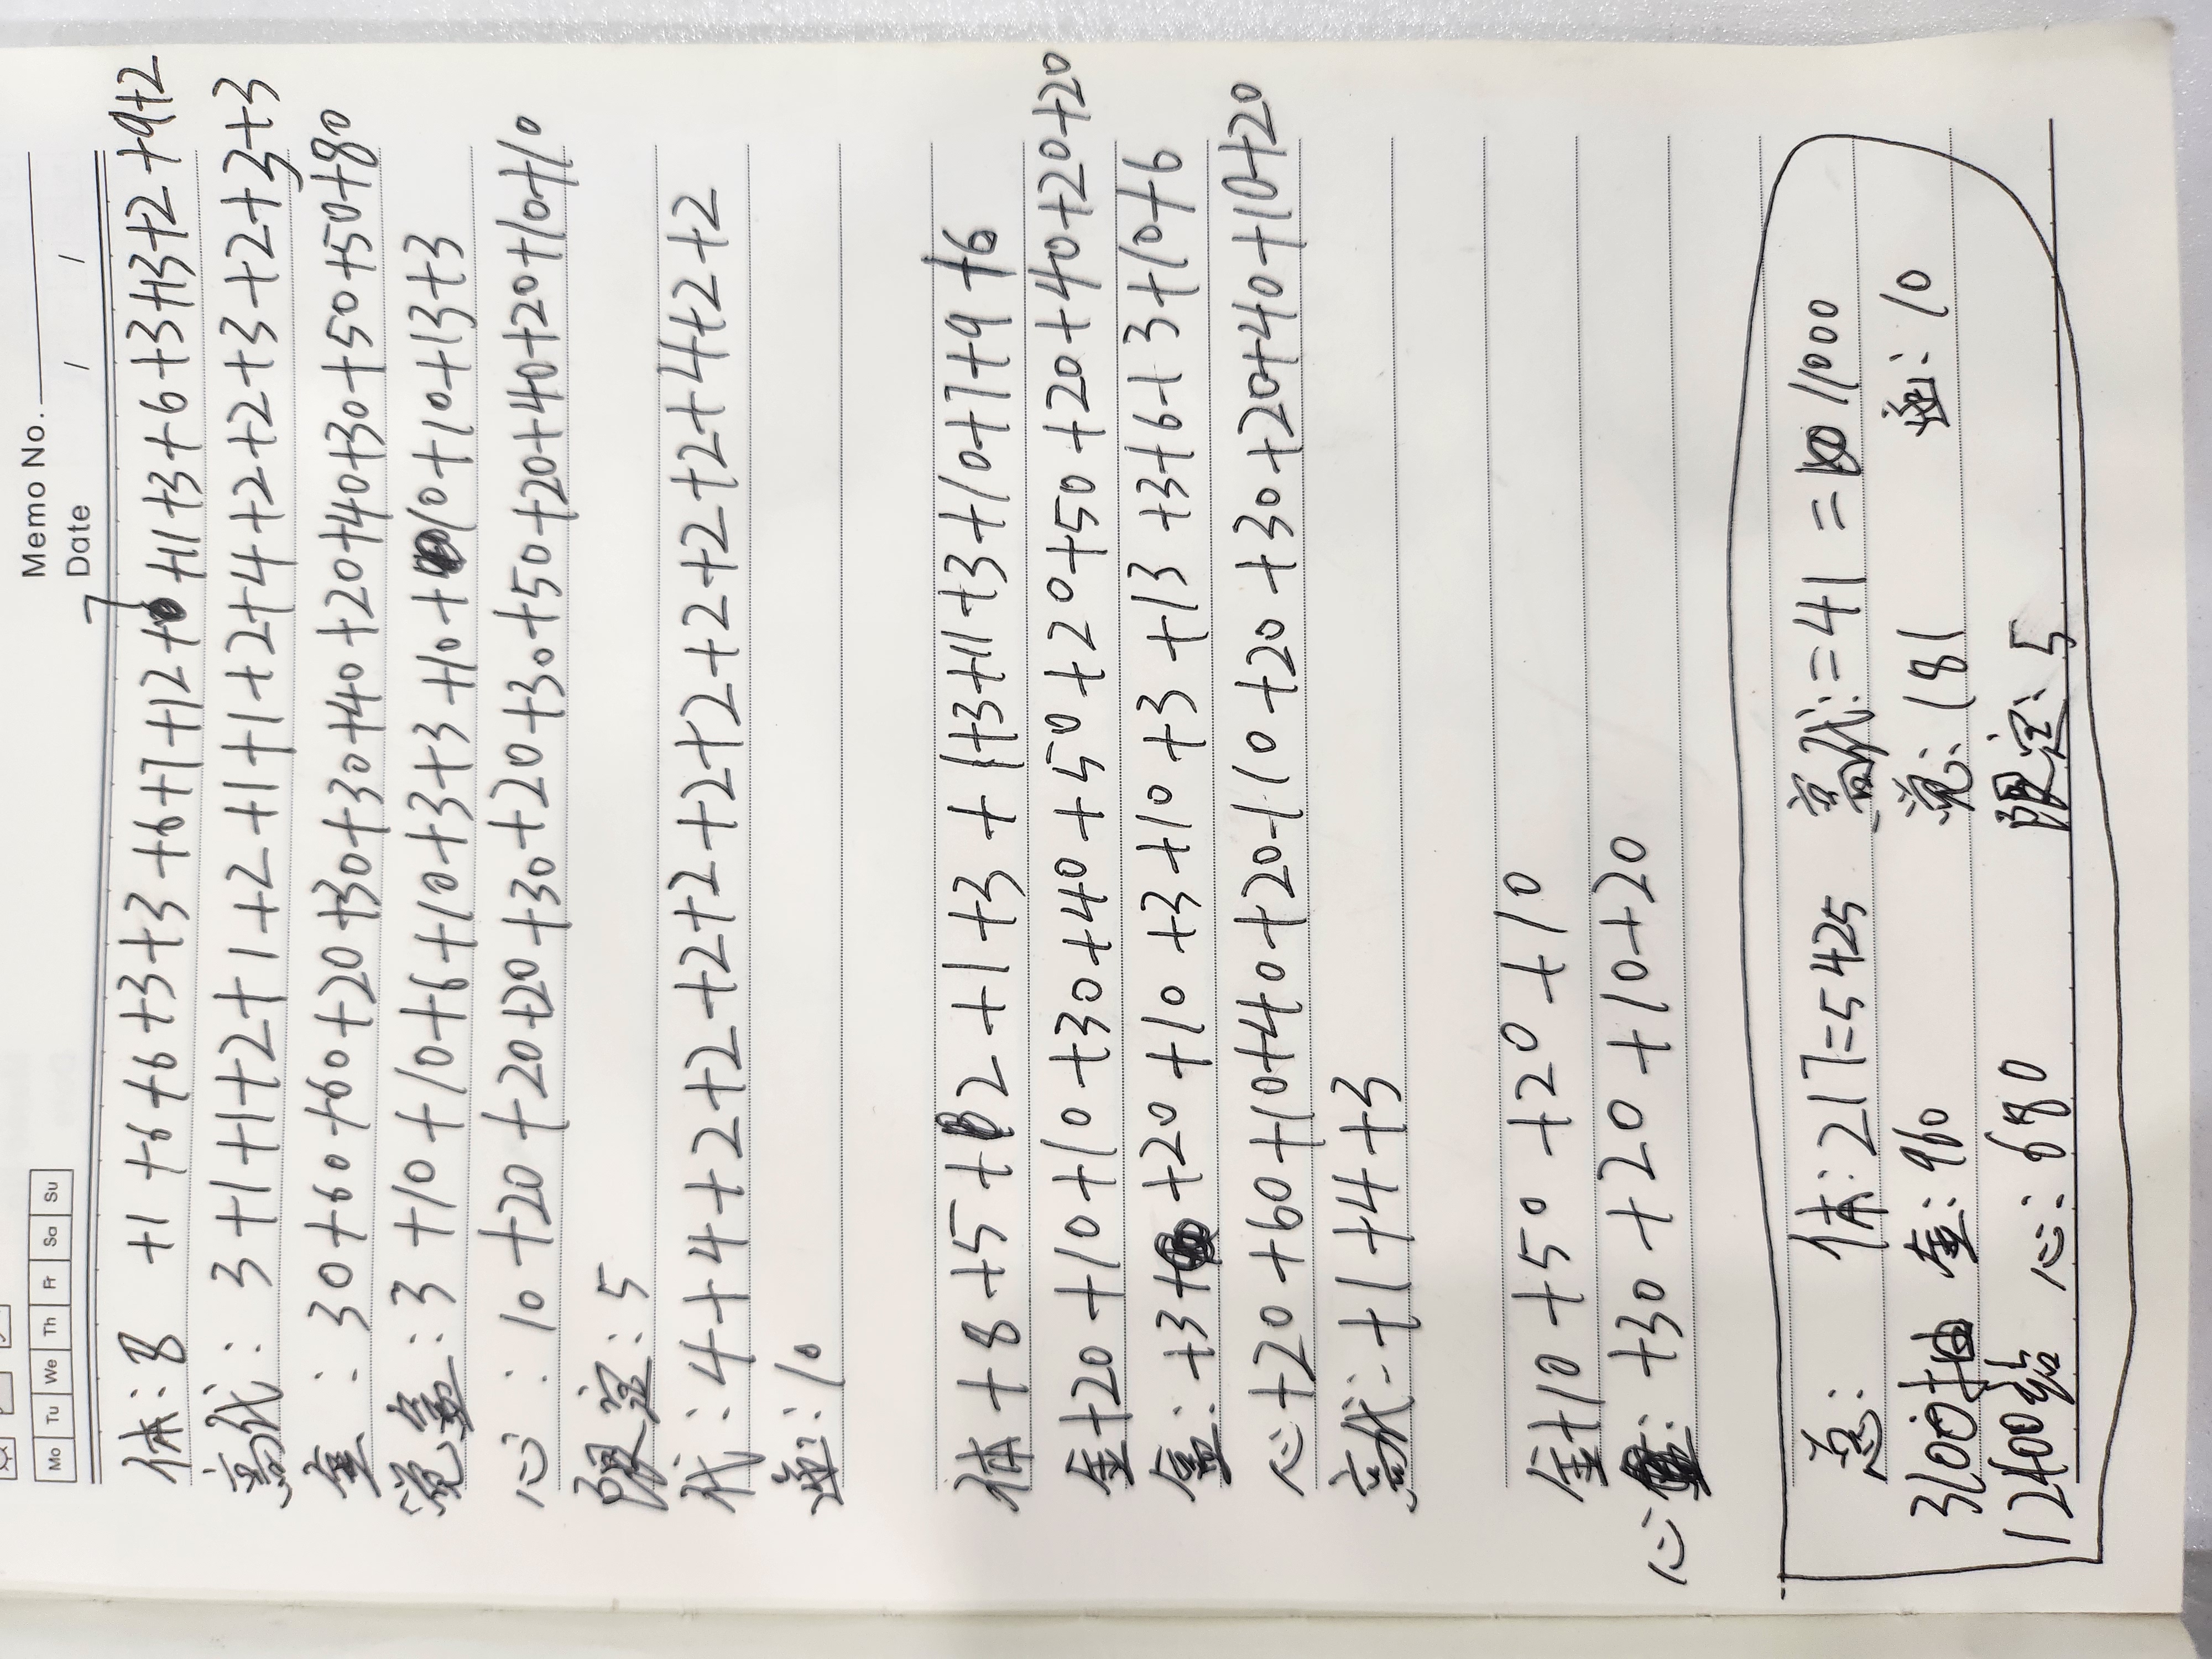 Mo Tu We Th Fr Sa Su
Memo No.
Date / /
7
体:8 +1 +6+6+3+3 +6+7+12+ +11+3+6+3+13+2+9+2
高代: 3+1+1+2+1+2+1+1+2+4+2+2+3+2+3+3
金:30+60+60+20+30+30+40+20+40+30+50+50+80
觉盒:3+10+10+6+10+3+3+10+10+10+13+3
心:10+20+20+20+30+20+30+50+20+40+20+10+10
限定:5
代:4+4+2+2+2+2+2+2+2+2+2+4+2+2
:10
体+8+5+2+1+3+1+3+11+3+10+7+9+6
金+20+10+10+30+40+50+20+50+20+40+20+20
盒:+3+ +20+10+3+10+3+13+3+6+3+10+6
心+20+60+10+40+20+10+20+30+20+40+10+20
高代:+1+4+3
金+10+50+20+10
心 :+30+20+10+20
总: 体:217=5425 高代:=41= 11000
3100抽 金:960 觉:181 :10
12400钻 心:680 限定:5